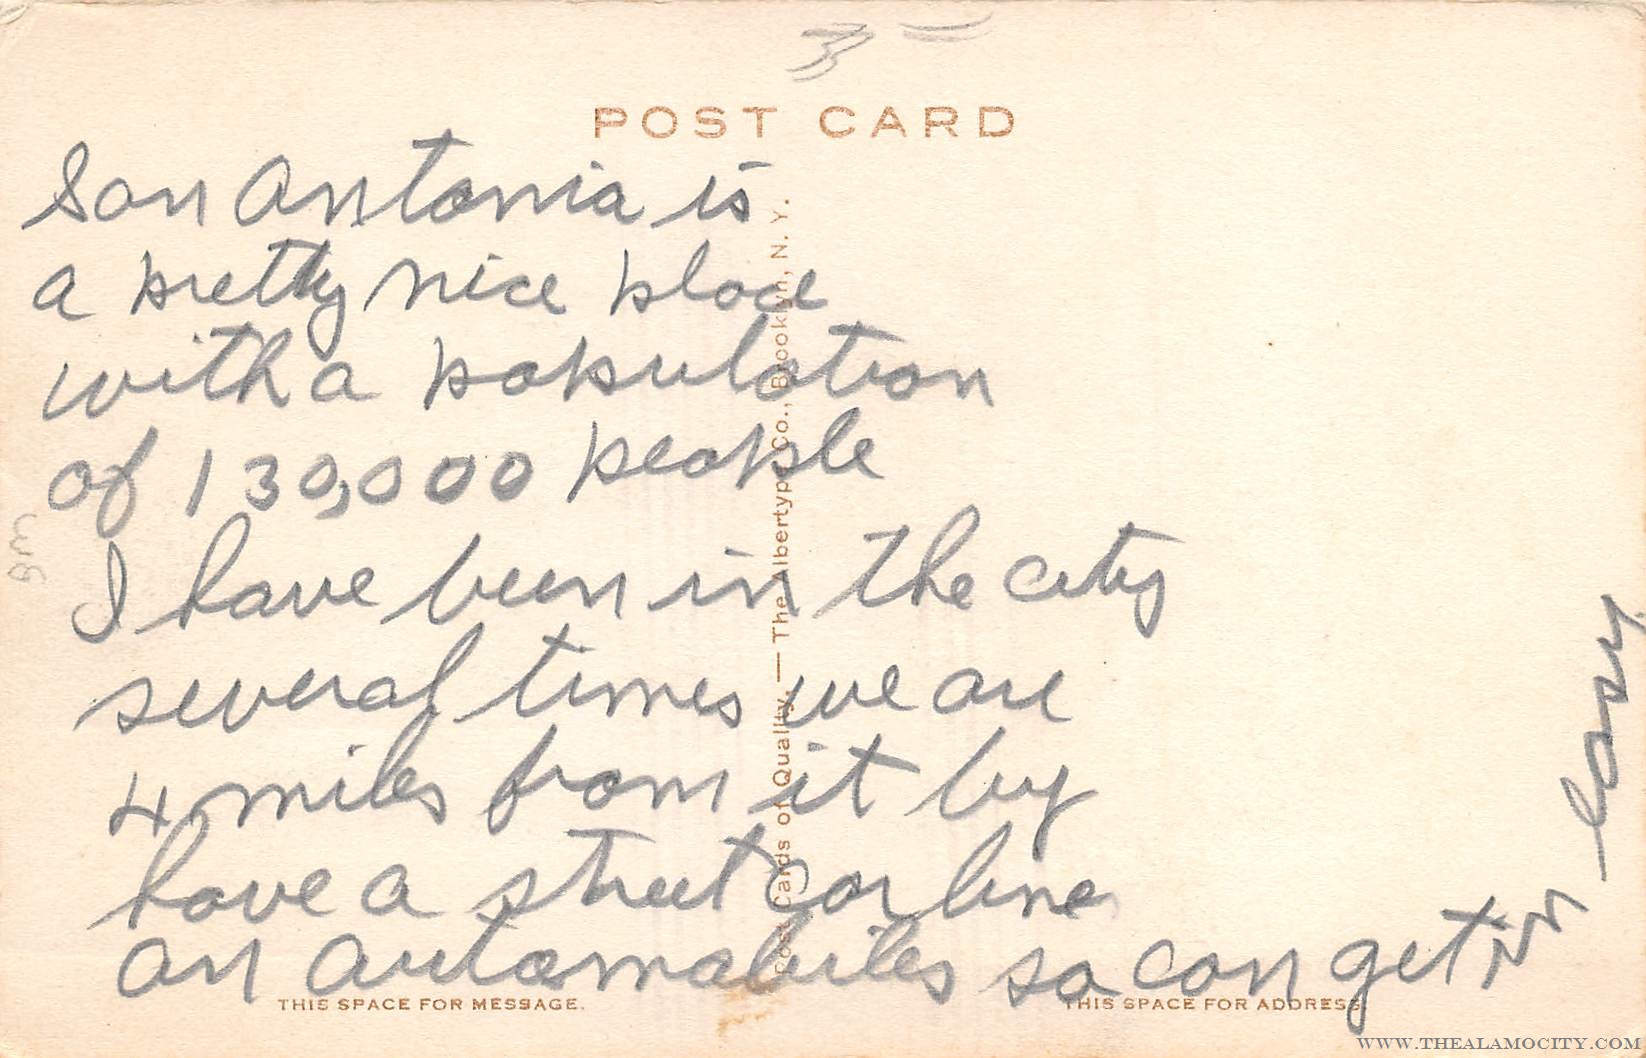 POST CARD
San Antonia is
a pretty nice place
with a population
of 130,000 people
I have been in the city
several times we are
4 miles from it by
have a street car line
an automobiles so can get in easy.
Post Cards of Quality. — The Albertype Co., Brooklyn, N. Y.
THIS SPACE FOR MESSAGE.
THIS SPACE FOR ADDRESS.
WWW.THEALAMOCITY.COM